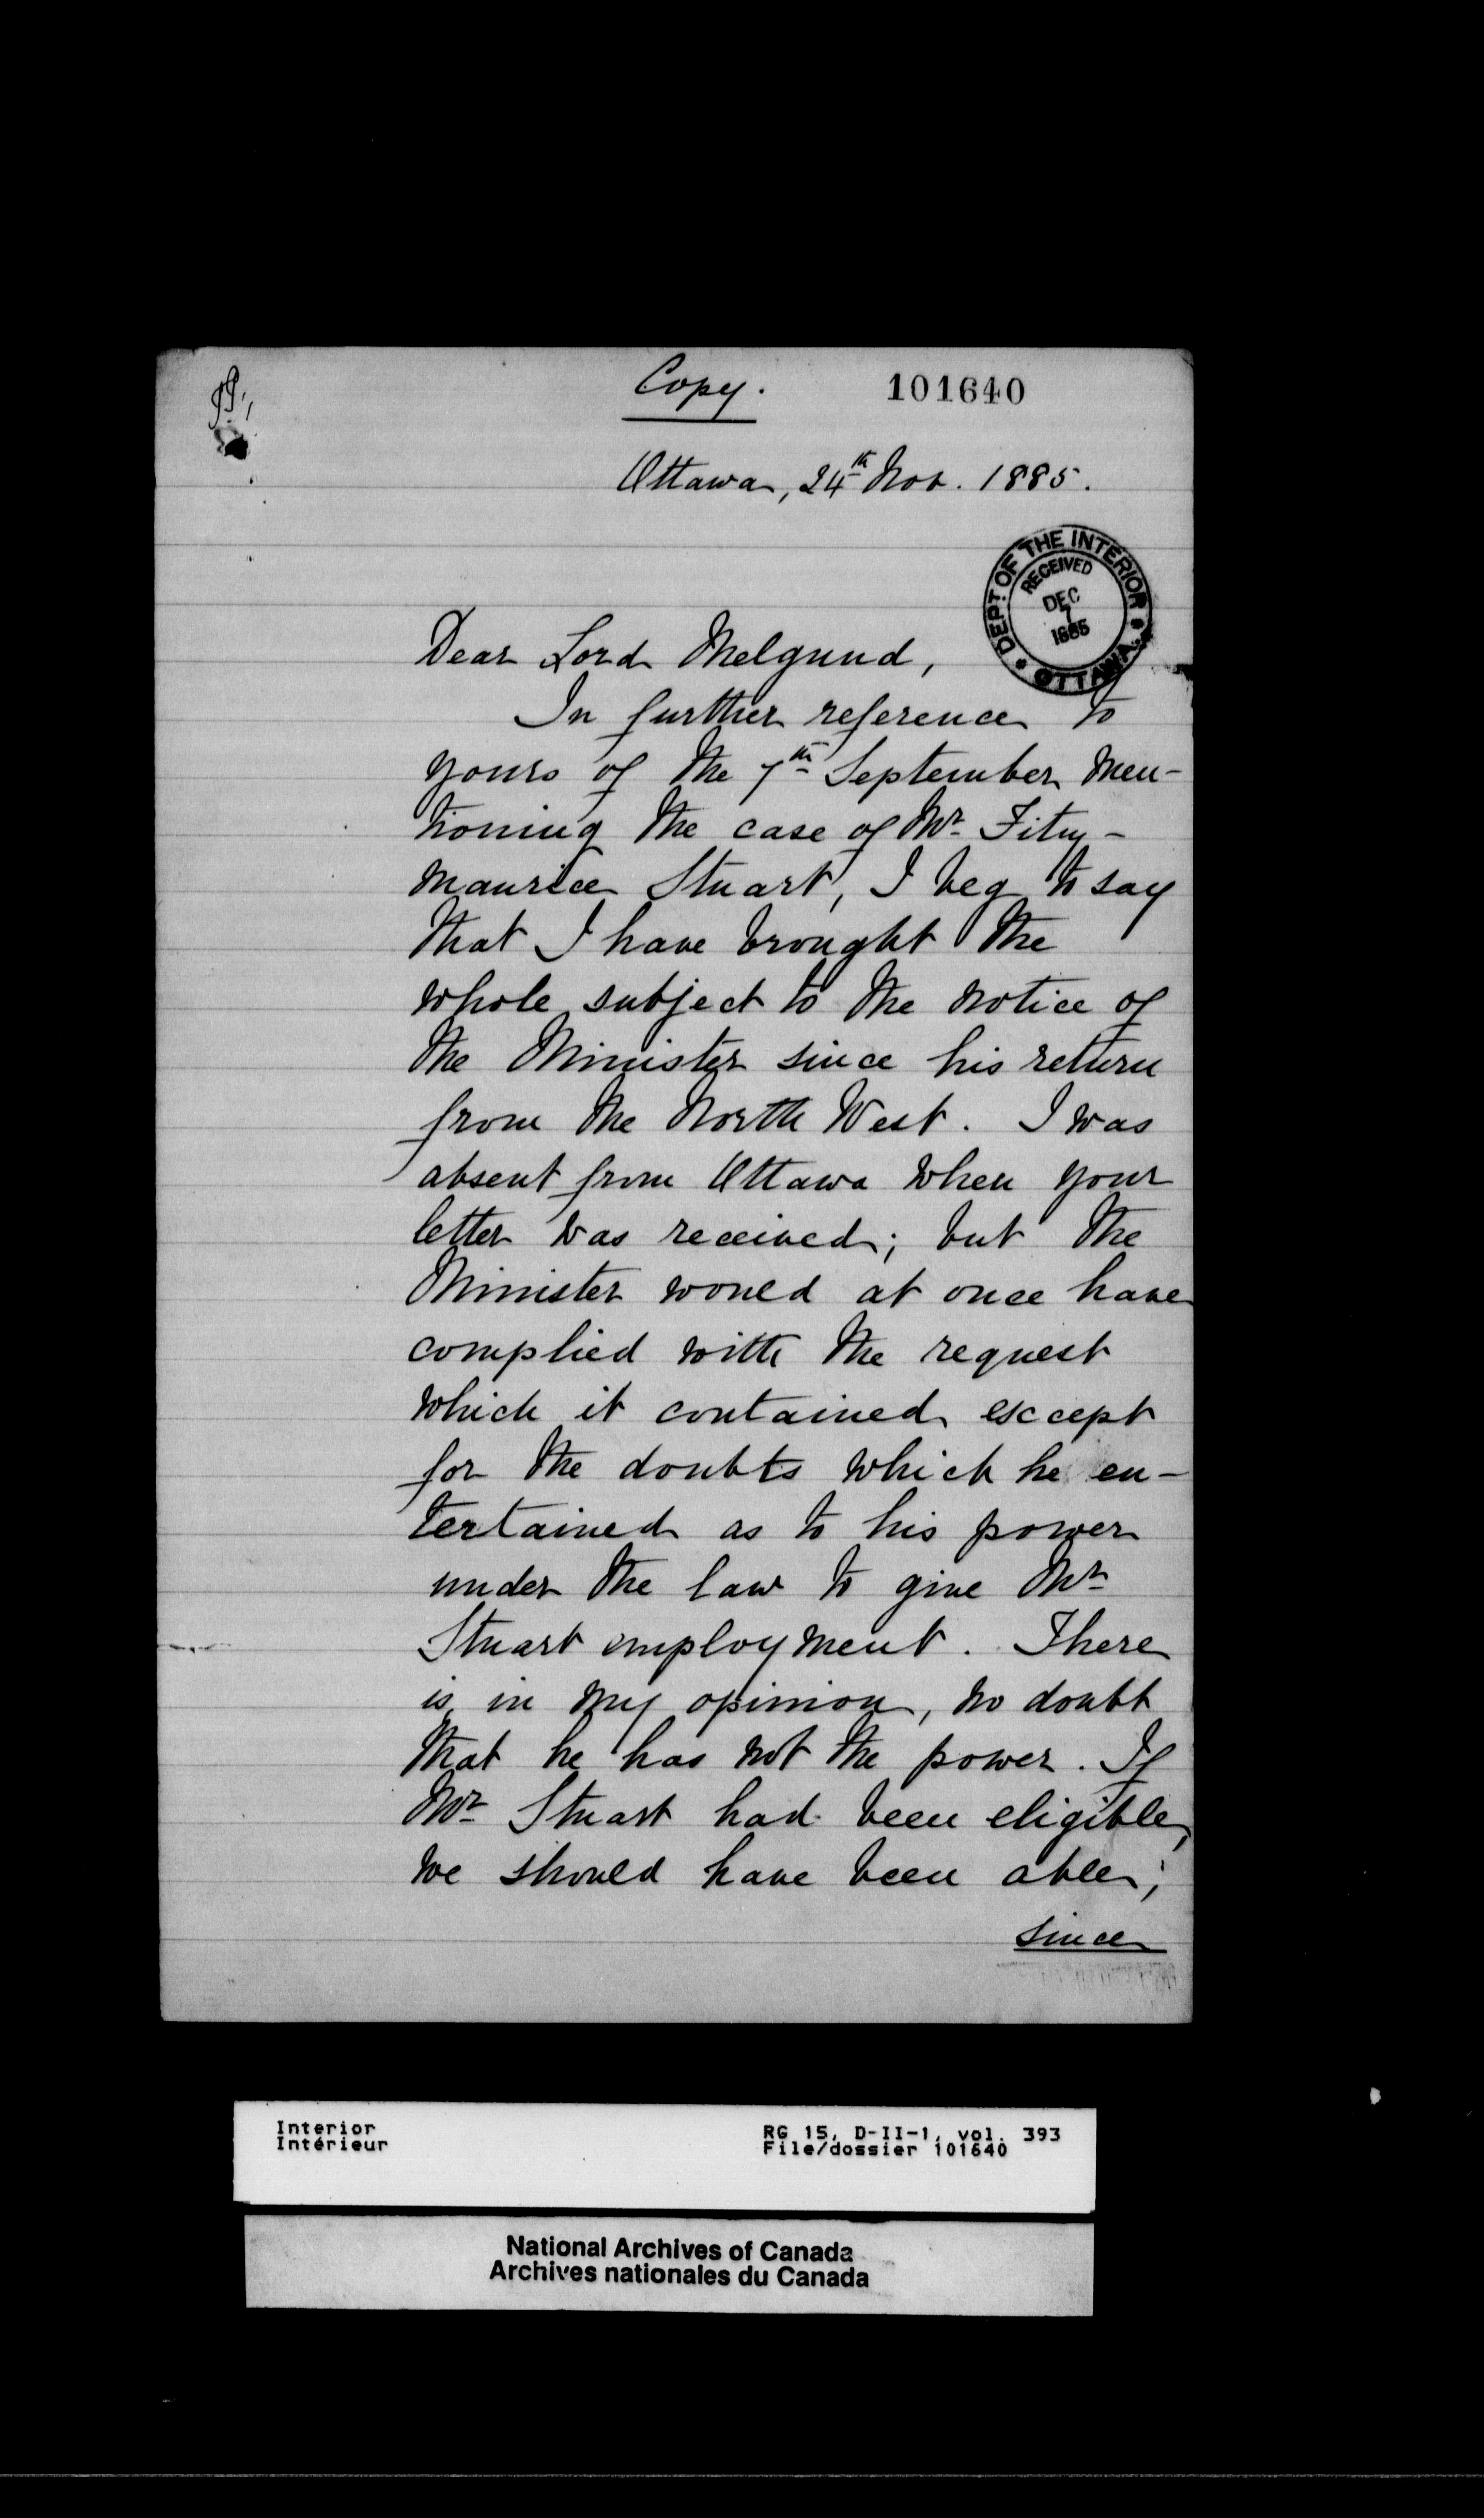 Copy.
101640
Ottawa, 24th Nov. 1885.
DEPT. OF THE INTERIOR
RECEIVED
DEC
7
1885
OTTAWA
Dear Lord Melgund,
In further reference to
yours of the 7th September men-
tioning the case of Mr Fitz-
maurice Stuart, I beg to say
that I have brought the
whole subject to the notice of
the Minister since his return
from the North West. I was
absent from Ottawa when your
letter was received; but the
Minister would at once have
complied with the request
which it contained except
for the doubts which he en-
tertained as to his power
under the law to give Mr
Stuart employment. There
is, in my opinion, no doubt
that he has not the power. If
Mr Stuart had been eligible,
we should have been able;
since
Interior
Intérieur
RG 15, D-II-1, vol. 393
File/dossier 101640
National Archives of Canada
Archives nationales du Canada